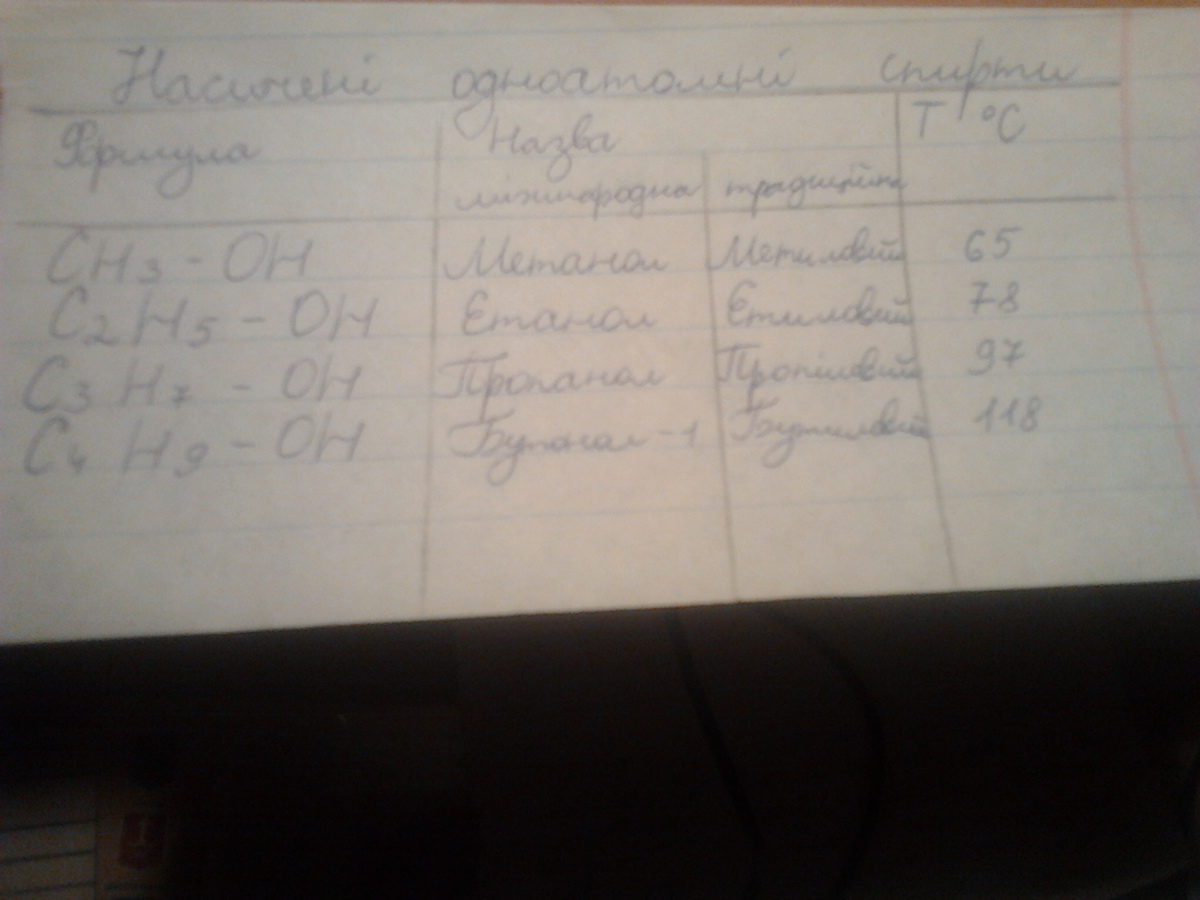 Насичені одноатомні спирти
Формула Назва T °C
міжнародна традиційна
CH3 - OH Метанол Метиловий 65
C2H5 - OH Етанол Етиловий 78
C3H7 - OH Пропанол Пропіловий 97
C4H9 - OH Бутанол-1 Бутиловий 118